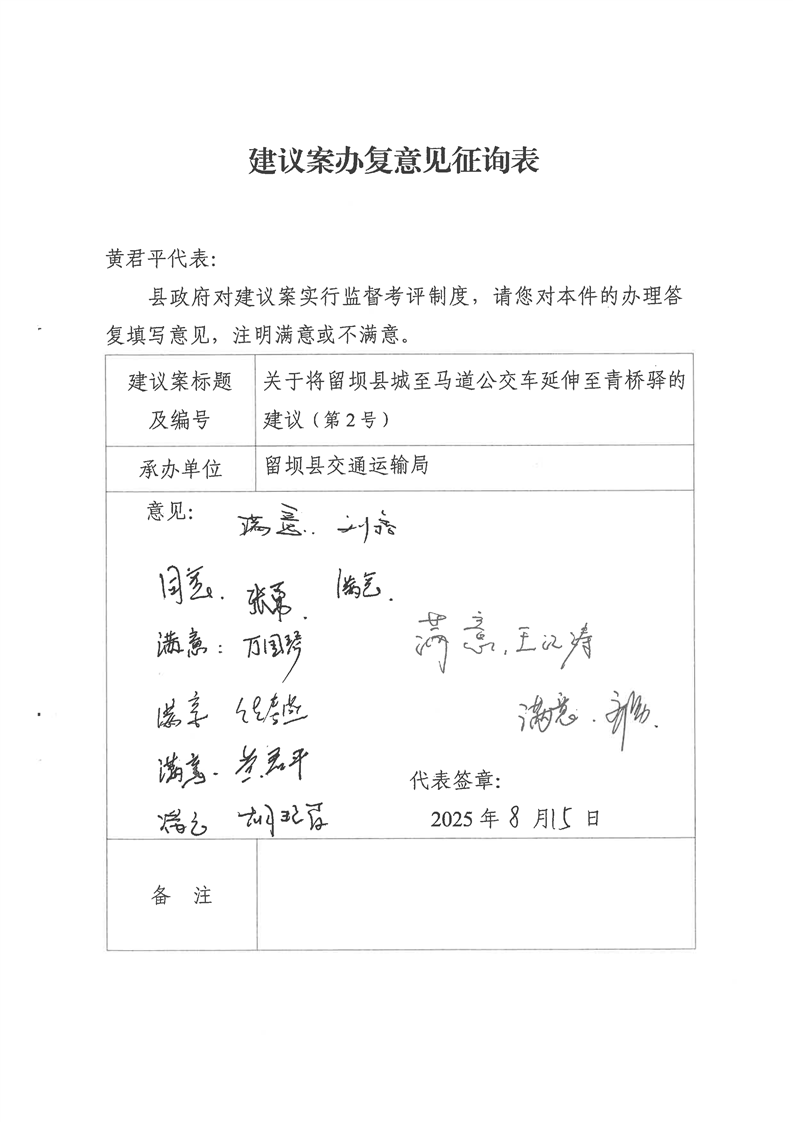 建议案办复意见征询表
黄君平代表：
县政府对建议案实行监督考评制度，请您对本件的办理答
复填写意见，注明满意或不满意。
建议案标题
及编号
关于将留坝县城至马道公交车延伸至青桥驿的
建议（第2号）
承办单位
留坝县交通运输局
意见：
满意. 刘
同意. 张勇. 满意.
满意：万国琴
满意.王汉涛
满意
满意.
满意. 黄君平
代表签章：
满意 胡
2025年8月15日
备 注